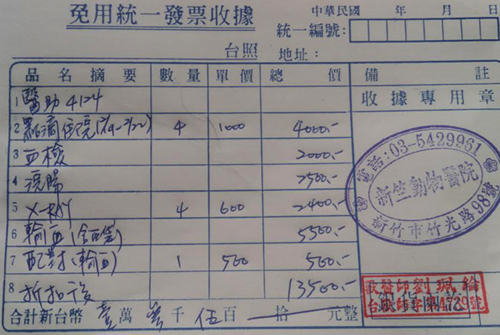 免用統一發票收據
中華民國 年 月 日
統一編號:
台照 地址:
品名摘要 數量 單價 總價 備註
收據專用章
1 醫助4124
2 點滴住院 4 1000 4000.-
3 血檢 2000.-
4 2500.-
5 X-ray 4 600 2400.-
6 輸血 5500.-
7 配對(輸血) 1 500 500.-
8 折扣後 13500.-
合計新台幣 壹萬 千伍百 拾 元整
電話:03-5429961
新竺動物醫院
新竹市竹光路98號
獸醫師劉珮綸